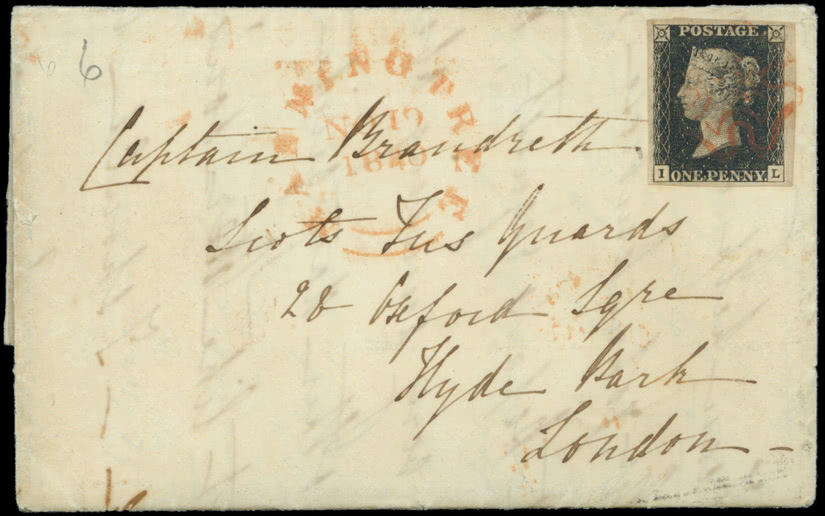 6
POSTAGE
I ONE PENNY L
1840
Captain Brandreth
Scots Fus Guards
20 Oxford Sqre
Hyde Park
London